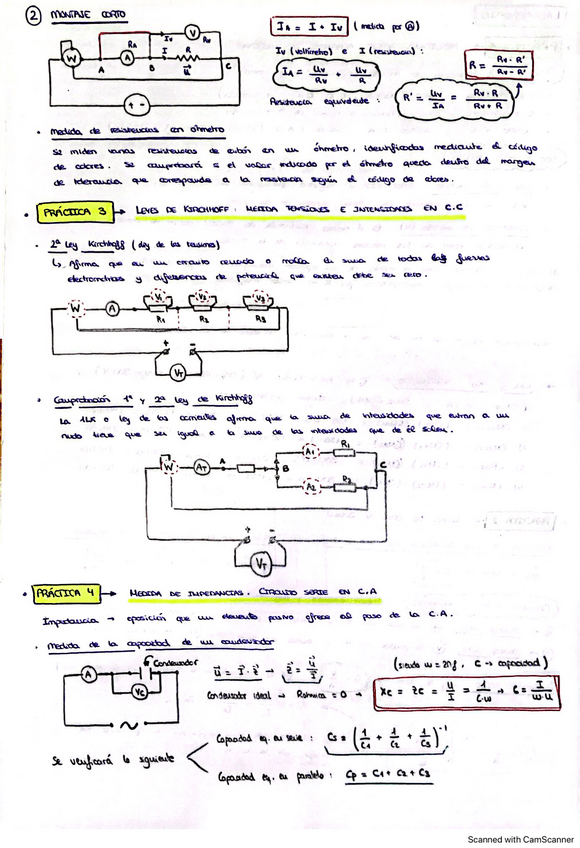 ② MONTAJE CORTO
IA = I + Iv (medida por Ⓐ)
Iv (voltímetro) e I (resistencia):
IA = Uv/Rv + Uv/R
R = Rv · R' / Rv - R'
Resistencia equivalente: R' = Uv/IA = Rv · R / Rv + R
W A RA A B Iv V Rv I R U C + -
• Medida de resistencias con óhmetro
Se miden varias resistencias de carbón en un óhmetro, identificadas mediante el código
de colores. Se comprobará si el valor indicado por el óhmetro queda dentro del margen
de tolerancia que corresponde a la resistencia según el código de colores.
• PRÁCTICA 3 → LEYES DE KIRCHHOFF: MEDIDA TENSIONES E INTENSIDADES EN C.C
• 2ª Ley Kirchhoff (ley de las tensiones)
↳ Afirma que en un circuito cerrado o malla la suma de todas las fuerzas
electromotrices y diferencias de potencial que existen debe ser cero.
W A V1 V2 V3
R1 R2 R3
+ -
VT
• Comprobación 1ª y 2ª Ley de Kirchhoff
La 1LK o ley de las corrientes afirma que la suma de intensidades que entran a un
nudo tiene que ser igual a la suma de las intensidades que de él salen.
A1 R1
W AT A B C
A2 R2
+ -
VT
• PRÁCTICA 4 → MEDIDA DE IMPEDANCIAS. CIRCUITO SERIE EN C.A
Impedancia → oposición que un elemento pasivo ofrece al paso de la C.A.
• Medida de la capacidad de un condensador
A Condensador
Vc
U = I · Z → Z = U/I (siendo w = 2πf, C → capacidad)
Condensador ideal → Róhmica = 0 → Xc = Zc = U/I = 1/C·w → C = I/w·U
Se verificará lo siguiente
Capacidad eq. en serie: Cs = (1/C1 + 1/C2 + 1/C3)⁻¹
Capacidad eq. en paralelo: Cp = C1 + C2 + C3
Scanned with CamScanner